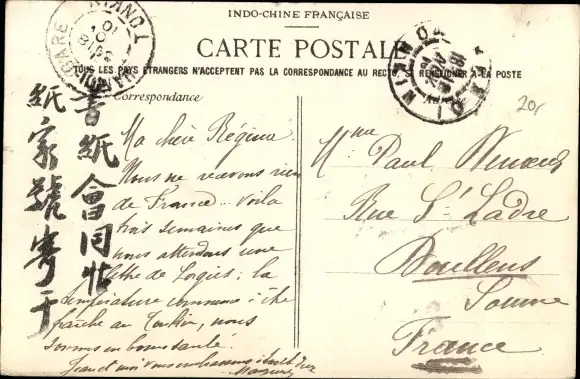 INDO-CHINE FRANÇAISE
CARTE POSTALE
TOUS LES PAYS ÉTRANGERS N'ACCEPTENT PAS LA CORRESPONDANCE AU RECTO. SE RENSEIGNER A LA POSTE
Correspondance
書紙會同帖
紙家號寄于
Ma chère Régina
Nous ne recevons rien
de France... Voila
trois semaines que
nous attendons une
lettre de Longis; la
température commence à être
fraîche au Tonkin, nous
sommes en bonne santé.
Jean et moi vous embrassons
Mme Paul
Rue St Ladre
Doullens
Somme
France
20f
HANOI
TONKIN